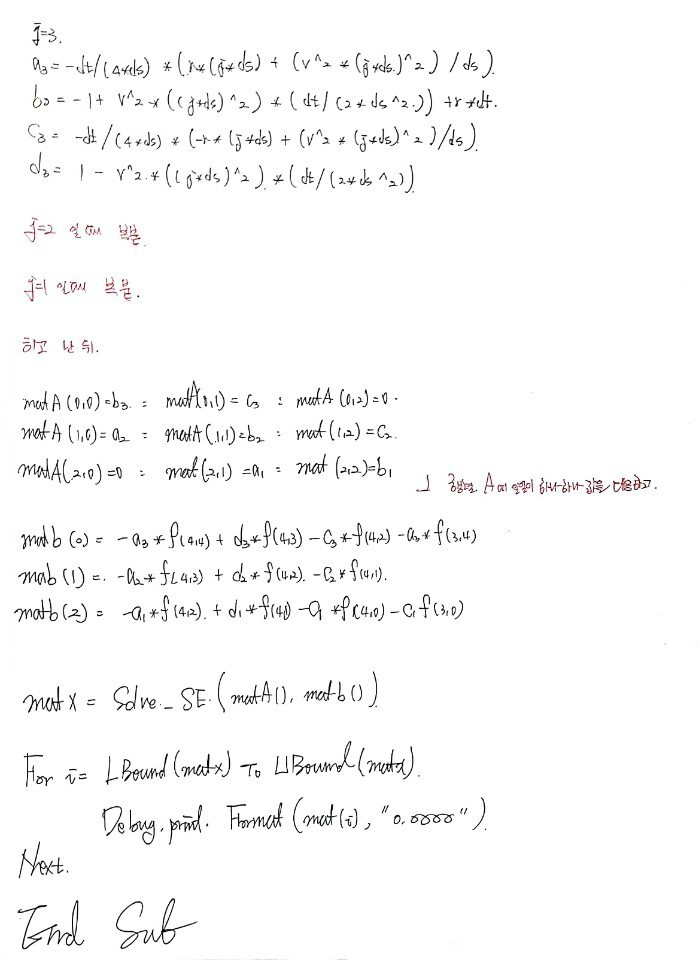 j=3.
a3 = -dt/(4*ds) * (r*(j*ds) + (v^2 * (j*ds)^2) / ds)
b3 = -1+ v^2 * ((j*ds)^2) * (dt/(2*ds^2)) +r*dt.
C3 = -dt/(4*ds) * (-r*(j*ds) + (v^2 * (j*ds)^2)/ds)
d3 = 1 - v^2 * ((j*ds)^2) * (dt/(2*ds^2))
j=2 일때 부분.
j=1 일때 부분.
하고 난 뒤.
matA(0,0)=b3 : matA(0,1) = C3 : matA(0,2)=0.
matA(1,0)=a2 : matA(1,1)=b2 : mat(1,2)=C2.
matA(2,0)=0 : mat(2,1)=a1 : mat(2,2)=b1
행렬 A에 일일이 하나하나 값을
matb(0) = -a3*f(4,4) + d3*f(4,3) - C3*f(4,2) - a3*f(3,4)
mab(1) = -a2*f(4,3) + d2*f(4,2) - C2*f(4,1).
matb(2) = -a1*f(4,2). + d1*f(4,1) - C1*f(4,0) - C1f(3,0)
matx = Solve_SE.(matA(), matb())
For i= LBound(matx) To UBound(matx).
Debug.print. Format(mat(i), "0.0000")
Next.
End Sub